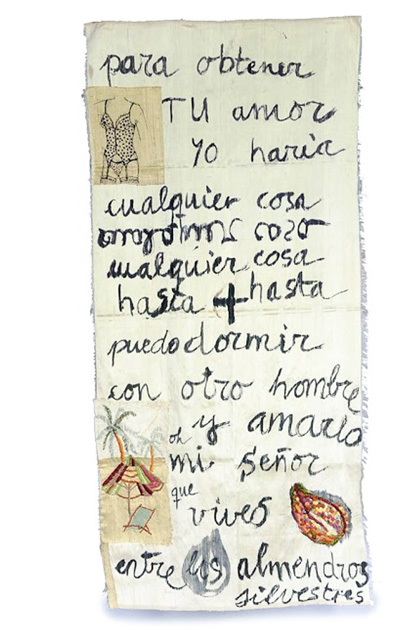 para obtener
TU amor
Yo haria
cualquier cosa
cualquier cosa
hasta + hasta
puedo dormir
con otro hombre
y amarlo
oh mi señor
que vives
entre los almendros
silvestres